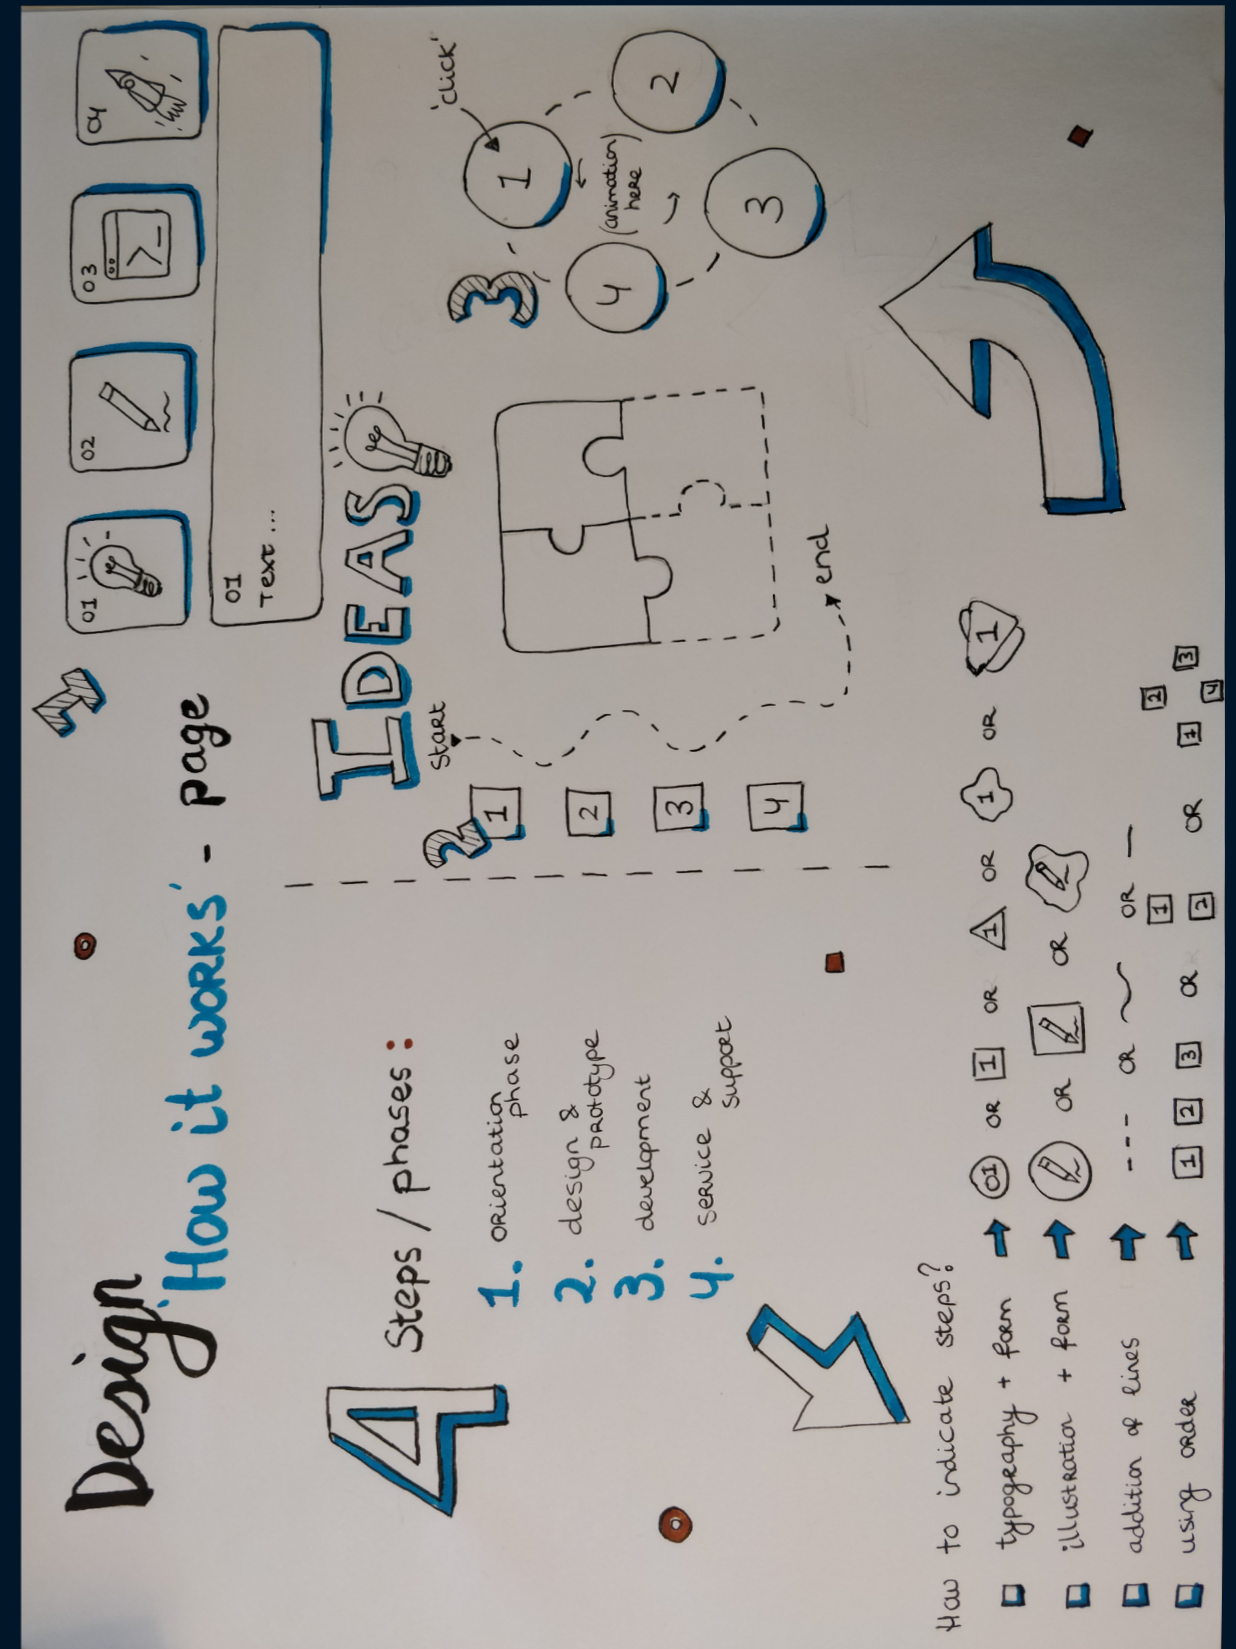 Design
'How it works' - page
4 Steps / phases:
1. orientation
phase
2. design &
prototype
3. development
4. service &
support
1
01
02
03
04
01
Text ...
IDEAS
2
Start
1
2
3
4
end
3
'click'
1
2
3
4
(animation)
here
How to indicate steps?
typography + form → 01 OR 1 OR 1 OR 1 OR 1
illustration + form → OR OR
addition of lines → --- OR ~ OR —
using order → 1 2 3 OR 1 2 OR 1 2 3 4